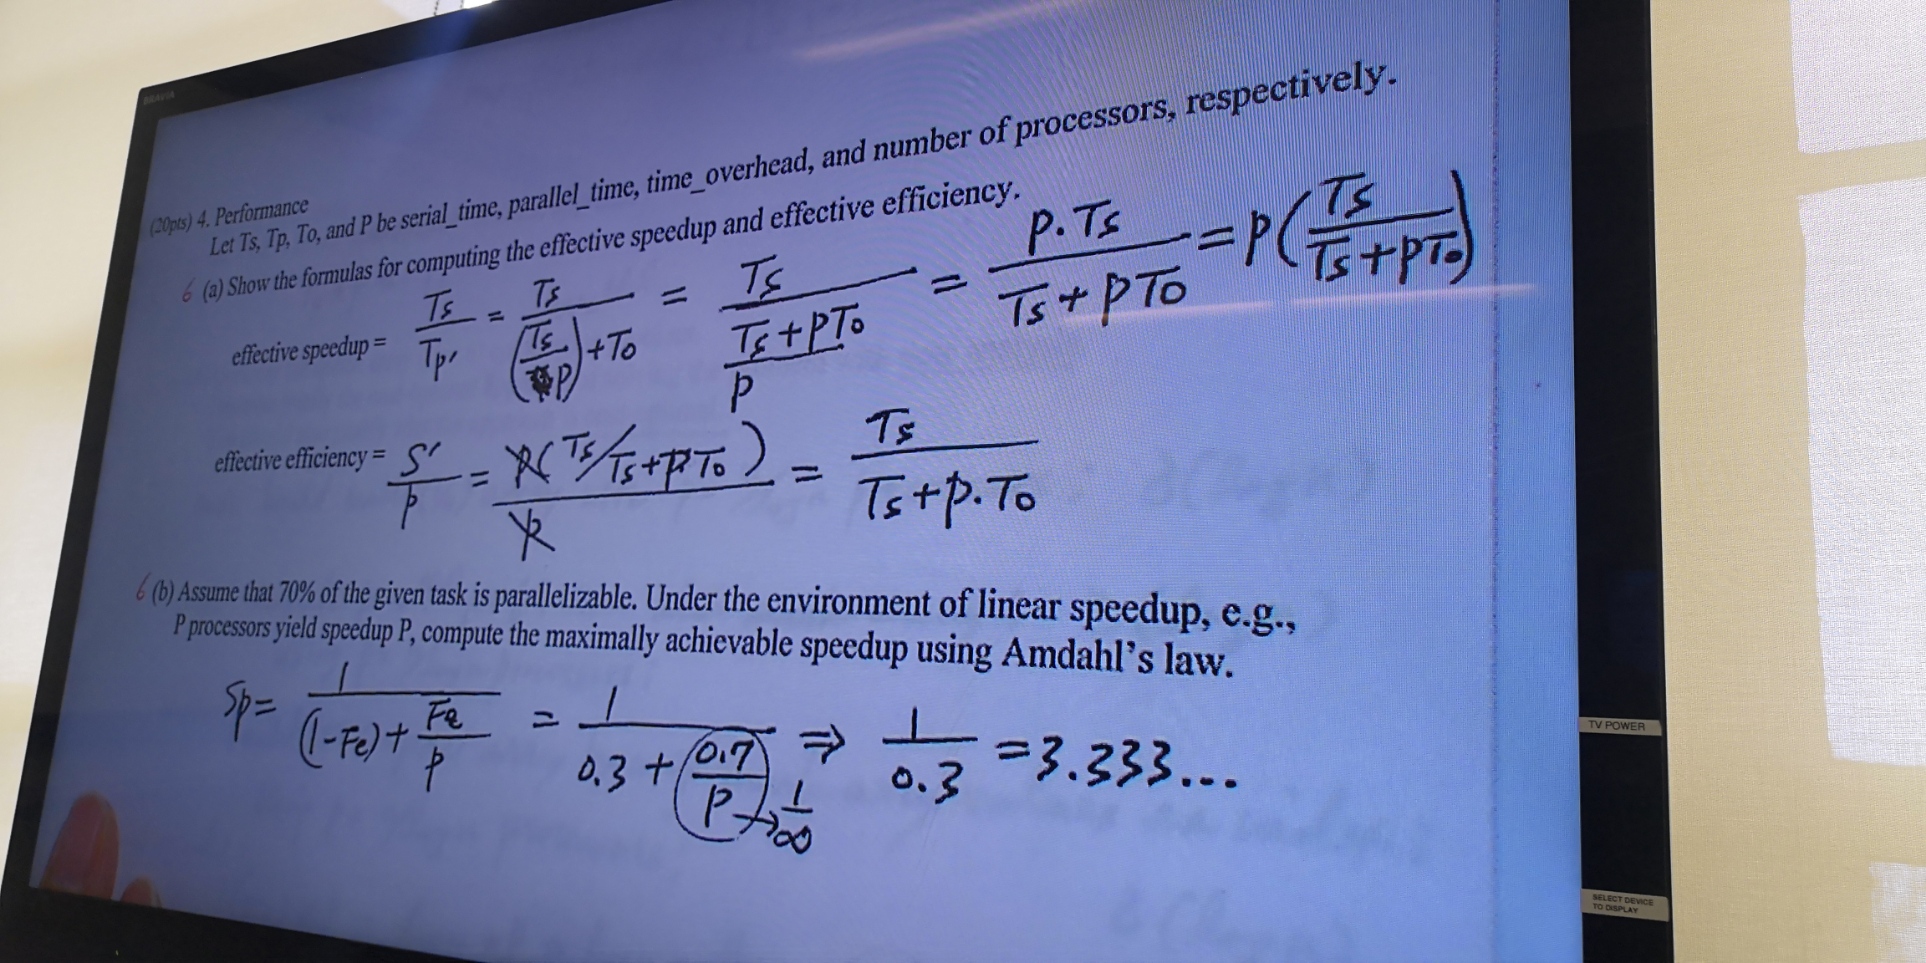 BRAVIA
(20pts) 4. Performance
Let Ts, Tp, To, and P be serial_time, parallel_time, time_overhead, and number of processors, respectively.
6 (a) Show the formulas for computing the effective speedup and effective efficiency.
effective speedup = Ts/Tp' = Ts/((Ts/P)+To) = Ts/((Ts+PTo)/P) = P·Ts/(Ts+PTo) = P(Ts/(Ts+PTo))
effective efficiency = S'/P = P(Ts/Ts+PTo)/P = Ts/(Ts+P·To)
6 (b) Assume that 70% of the given task is parallelizable. Under the environment of linear speedup, e.g.,
P processors yield speedup P, compute the maximally achievable speedup using Amdahl's law.
Sp = 1/((1-Fe)+Fe/P) = 1/(0.3+(0.7/P)) → 1/∞ ⇒ 1/0.3 = 3.333...
TV POWER
SELECT DEVICE
TO DISPLAY